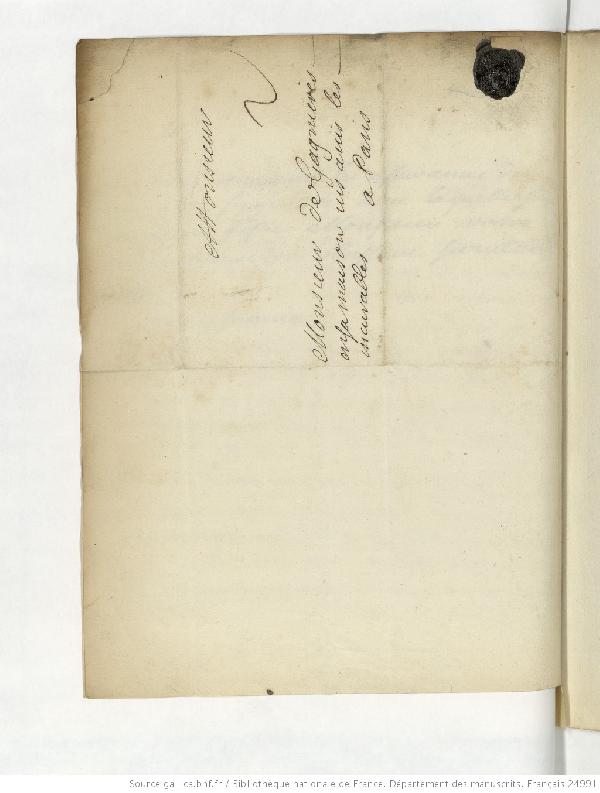 A Monsieur
Monsieur de Gagnieres
en sa maison vis avis les
incurables a Paris
Source gallica.bnf.fr / Bibliothèque nationale de France. Département des manuscrits. Français 24991